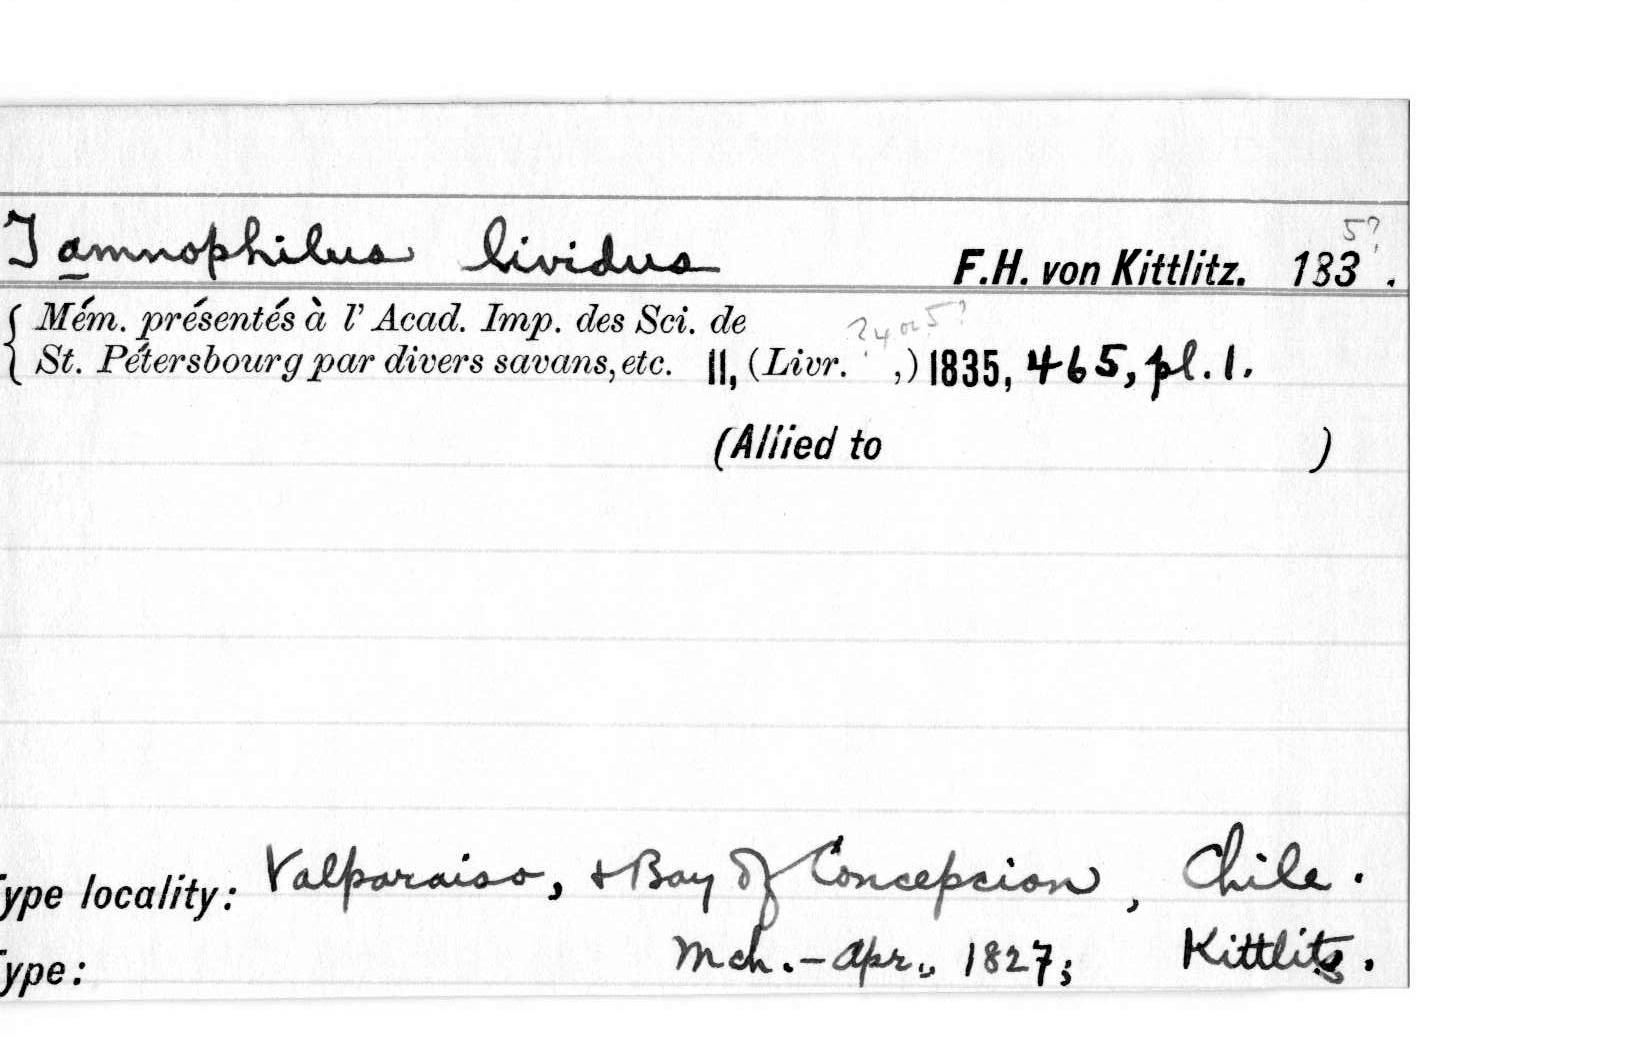 Tamnophilus lividus F.H. von Kittlitz. 1833 5?.
{ Mém. présentés à l' Acad. Imp. des Sci. de
St. Pétersbourg par divers savans, etc. II, (Livr. ? 4 or 5? ,) 1835, 465, pl. 1.
(Allied to )
ype locality: Valparaiso, & Bay of Concepcion, Chile.
ype: Mch. - Apr., 1827; Kittlitz.